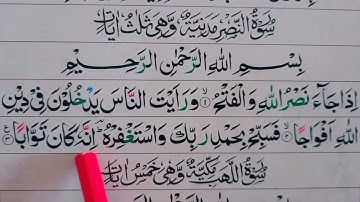 سُوْرَةُ النَّصْرِ مَدَنِيَّةٌ وَهِيَ ثَلٰثُ اٰيَاتٍ
بِسْمِ اللهِ الرَّحْمٰنِ الرَّحِيْمِ
اِذَا جَآءَ نَصْرُ اللهِ وَ الْفَتْحُ ۙ‏﴿۱﴾ وَ رَاَيْتَ النَّاسَ يَدْخُلُوْنَ فِيْ دِيْنِ
اللهِ اَفْوَاجًا ۙ‏﴿۲﴾ فَسَبِّحْ بِحَمْدِ رَبِّكَ وَ اسْتَغْفِرْهُ ؕ اِنَّهٗ كَانَ تَوَّابًا ‏﴿۳﴾
سُوْرَةُ اللَّهَبِ مَكِّيَّةٌ وَهِيَ خَمْسُ اٰيَاتٍ